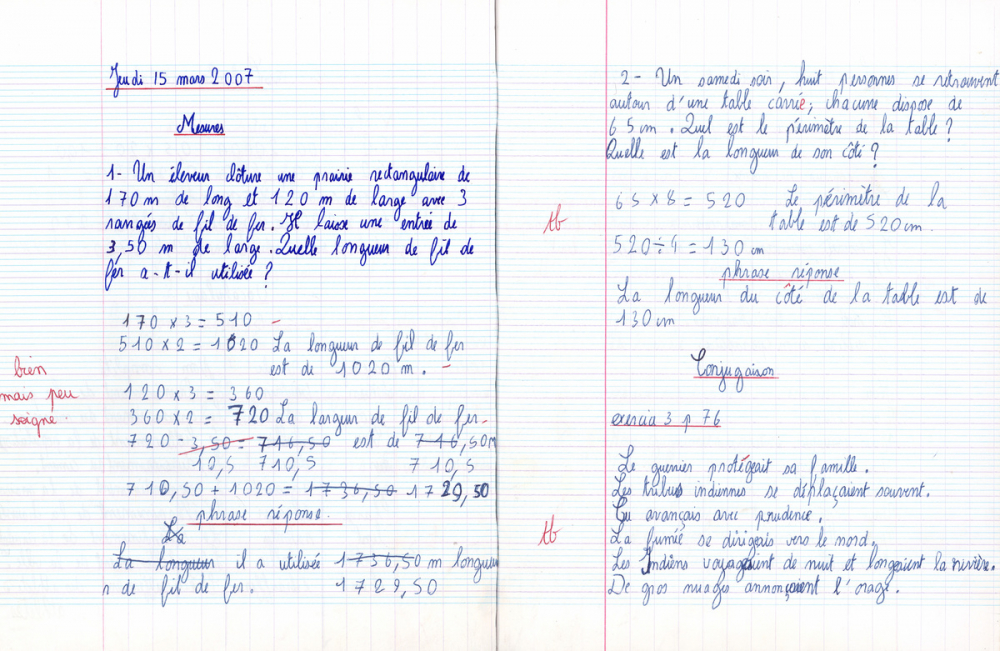 Jeudi 15 mars 2007
Mesures
1- Un éleveur clôture une prairie rectangulaire de
170 m de long et 120 m de large avec 3
rangés de fil de fer. Il laisse une entrée de
3,50 m de large. Quelle longueur de fil de
fer a-t-il utilisée ?
170 x 3 = 510
510 x 2 = 1020 La longueur de fil de fer
est de 1020 m.
bien
mais peu
soigné.
120 x 3 = 360
360 x 2 = 720 La largeur de fil de fer
720 - 3,50 = 716,50 est de 716,50m
10,5 710,5 710,5
710,50 + 1020 = 1736,50 1729,50
phrase réponse.
La
La longueur il a utilisée 1736,50 m longueu
r de fil de fer. 1729,50
2- Un samedi soir, huit personnes se retrouvent
autour d'une table carrée; chacune dispose de
65 cm. Quel est le périmètre de la table ?
Quelle est la longueur de son côté ?
65 x 8 = 520 Le périmètre de la
table est de 520 cm.
tb
520 ÷ 4 = 130 cm
phrase réponse
La longueur du côté de la table est de
130 cm
Conjugaison
exercice 3 p 76
Le guerrier protégeait sa famille.
Les tribus indiennes se déplaçaient souvent.
Tu avançais avec prudence.
tb
La fumée se dirigeais vers le nord.
Les Indiens voyageaient de nuit et longeaient la rivière.
De gros nuages annonçaient l'orage.